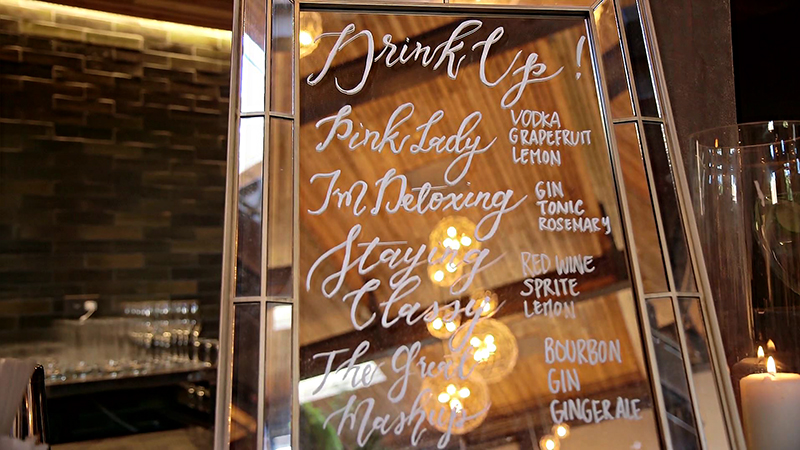 Drink Up!
Pink Lady
VODKA
GRAPEFRUIT
LEMON
I'm Detoxing
GIN
TONIC
ROSEMARY
Staying
Classy
RED WINE
SPRITE
LEMON
The Great
Mashups
BOURBON
GIN
GINGER ALE